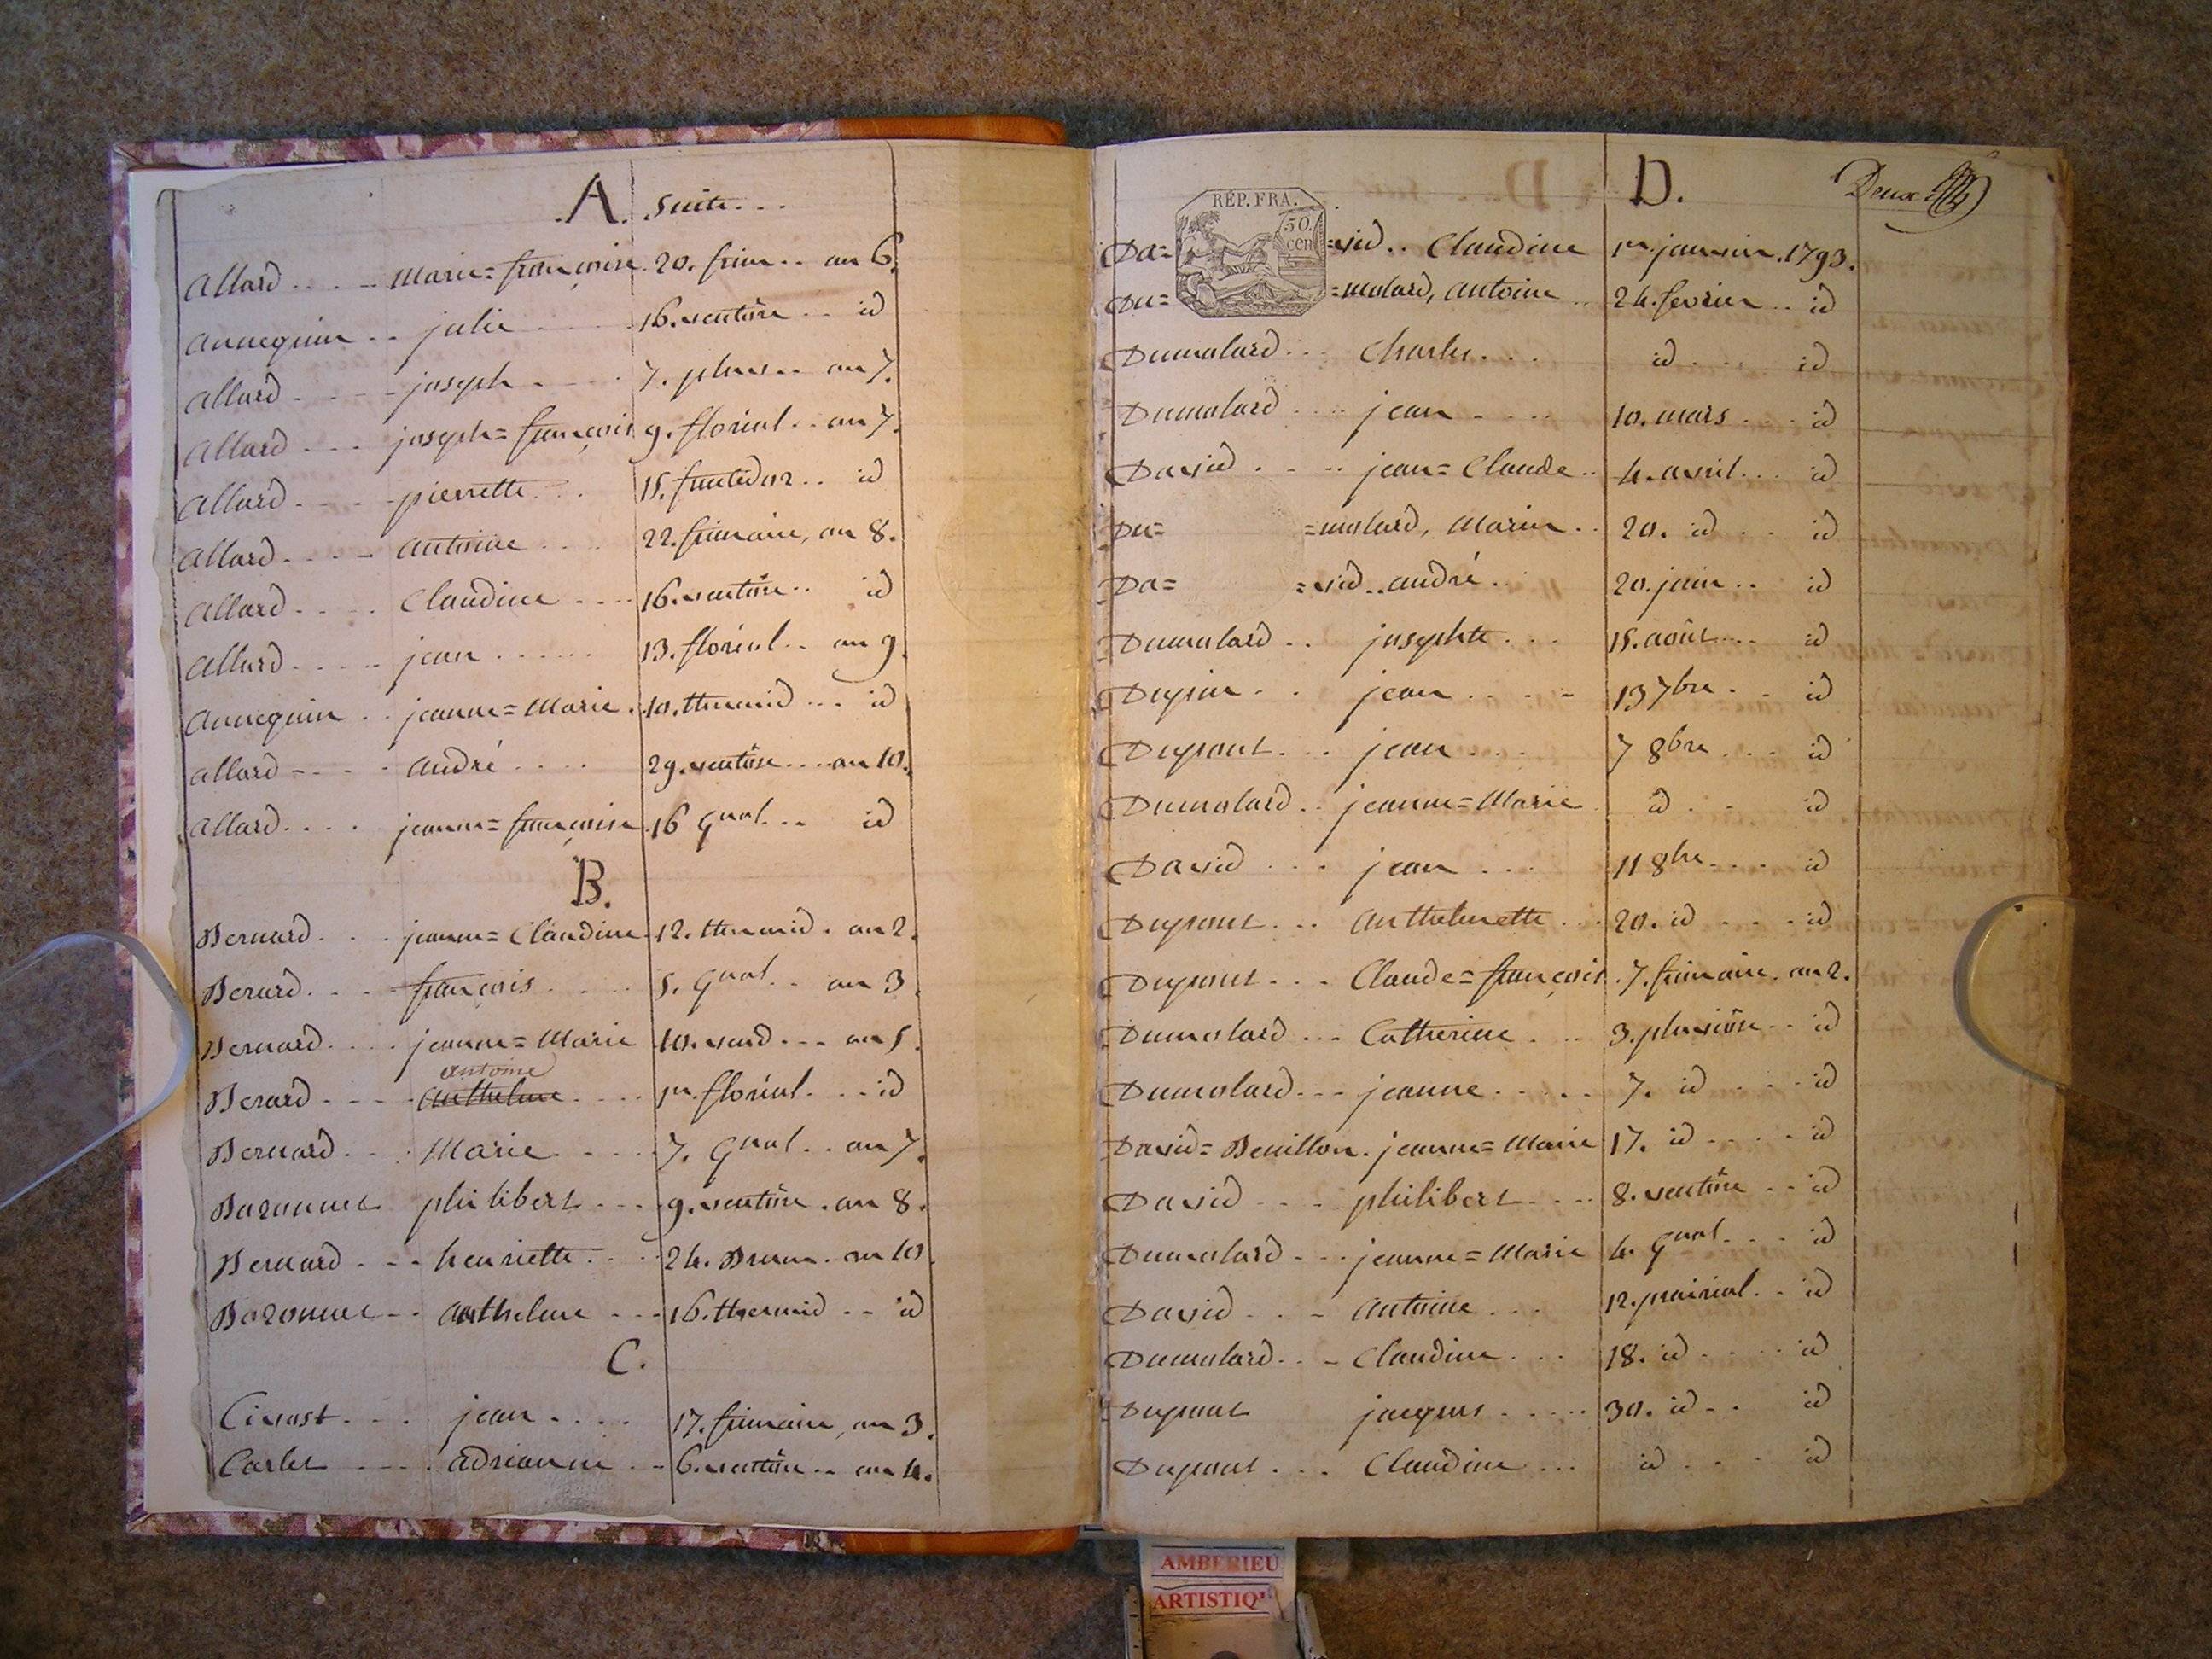 A. Suite...
Allard.... Marie=françoise 20. frim.. an 6.
Annequin.. julie 16. ventôse.. id
Allard.... joseph.... 7. pluv.. an 7.
Allard.... joseph=françois 9. floréal.. an 7.
Allard.... pierrette... 15. fructidor.. id
Allard.... Antoine.... 22. frimaire, an 8.
Allard.... Claudine.... 16. ventôse.. id
Allard..... jean...... 13. floréal.. an 9.
Annequin.. jeanne=Marie. 10. thermid... id
Allard.... André.... 29. ventôse.... an 10.
Allard.... jeanne=françoise 16 Gnal... id
B.
Bernard... jeanne=Claudine 12. thermid. an 2.
Berard.... françois.... 5. Gnal.. an 3.
Bernard.... jeanne=Marie 10. vend... an 5.
antoine
Berard.... Anthelme.... 1er. floréal... id
Bernard... Marie..... 7. Gnal.. an 7.
Bozonnet philibert.... 9. ventôse. an 8.
Bernard... henriette.... 24. Brum. an 10.
Bozonnet.. Anthelme... 16. thermid.. id
C.
jean.... 17. frimaire, an 3.
Carlet.... Adrianne.. 6. ventôse.. an 4.
D. Deux
RÉP. FRA.
50.
cen
Da= =vid.. Claudine 1er. janvier. 1793.
Du= =molard, Antoine.. 24. fevrier.. id
Dumolard... Charles... id.... id
Dumolard.... jean..... 10. mars... id
David.... jean=Claude.. 4. avril... id
Du= =molard, Marin.. 20. id... id
Da= =vid.. André... 20. juin.. id
Dumolard.. josephte... 15. août... id
Dupin.. jean.... 13 7bre.. id
Dupont... jean.... 7 8bre... id
Dumolard.. jeanne=Marie id.. id
David.... jean... 11 8bre.... id
Dupont... Anthelmette... 20. id.... id
Dupont... Claude=françois. 7. frimaire. an 2.
Dumolard... Catherine... 3. pluviôse.. id
Dumolard... jeanne..... 7. id.... id
David=Bouillon. jeanne=Marie 17. id.... id
David.... philibert.... 8. ventôse.. id
Dumolard... jeanne=Marie 4. Gnal... id
David... Antoine... 12. prairial.. id
Dumolard... Claudine... 18. id.... id
Dupont jacques..... 30. id.. id
Dupont... Claudine... id.... id
AMBERIEU
ARTISTIQ